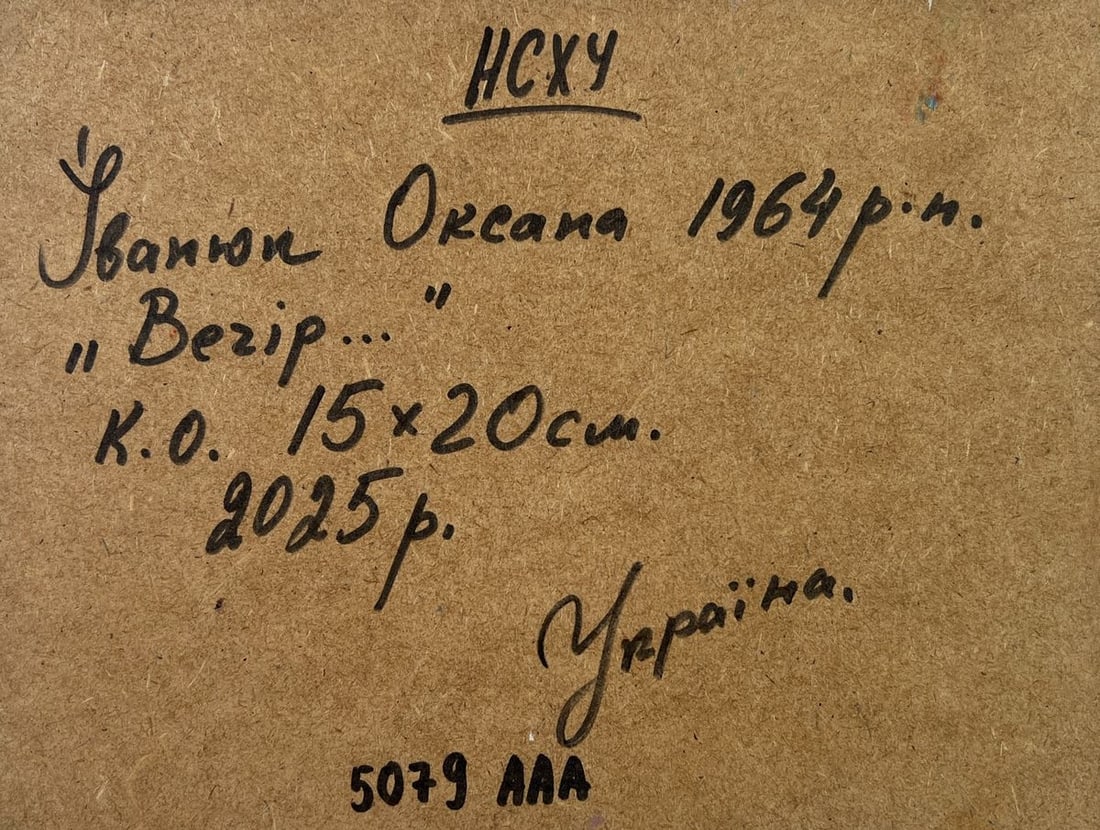 НСХУ
Іванюк Оксана 1964 р.н.
„Вечір..."
К.О. 15×20см.
2025р.
Україна.
5079 ААА